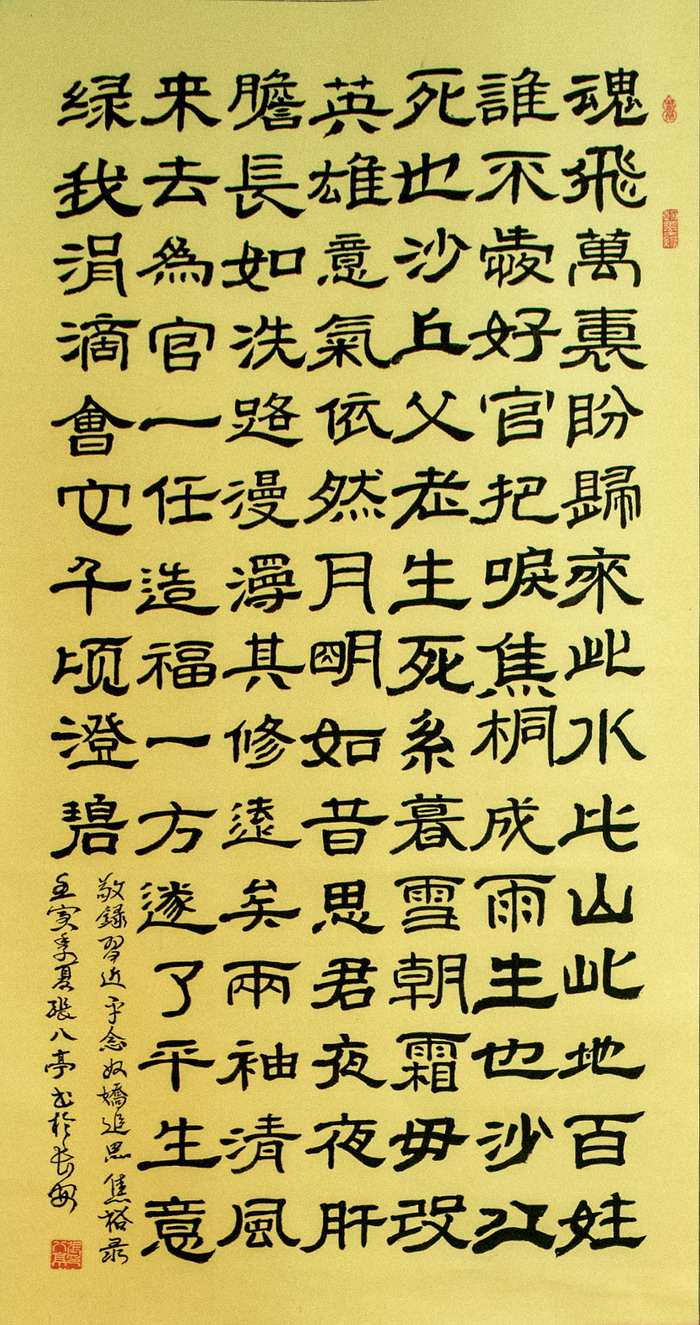 魂飛萬裏盼歸來此水此山此地百姓
誰不愛好官把淚焦桐成雨生也沙丘
死也沙丘父老生死系暮雪朝霜毋改
英雄意氣依然月明如昔思君夜夜肝
膽長如洗路漫漫其修遠矣兩袖清風
来去為官一任造福一方遂了平生意
绿我涓滴會它千顷澄碧
敬錄習近平念奴嬌追思焦裕录
壬寅季夏張八亭书於長安